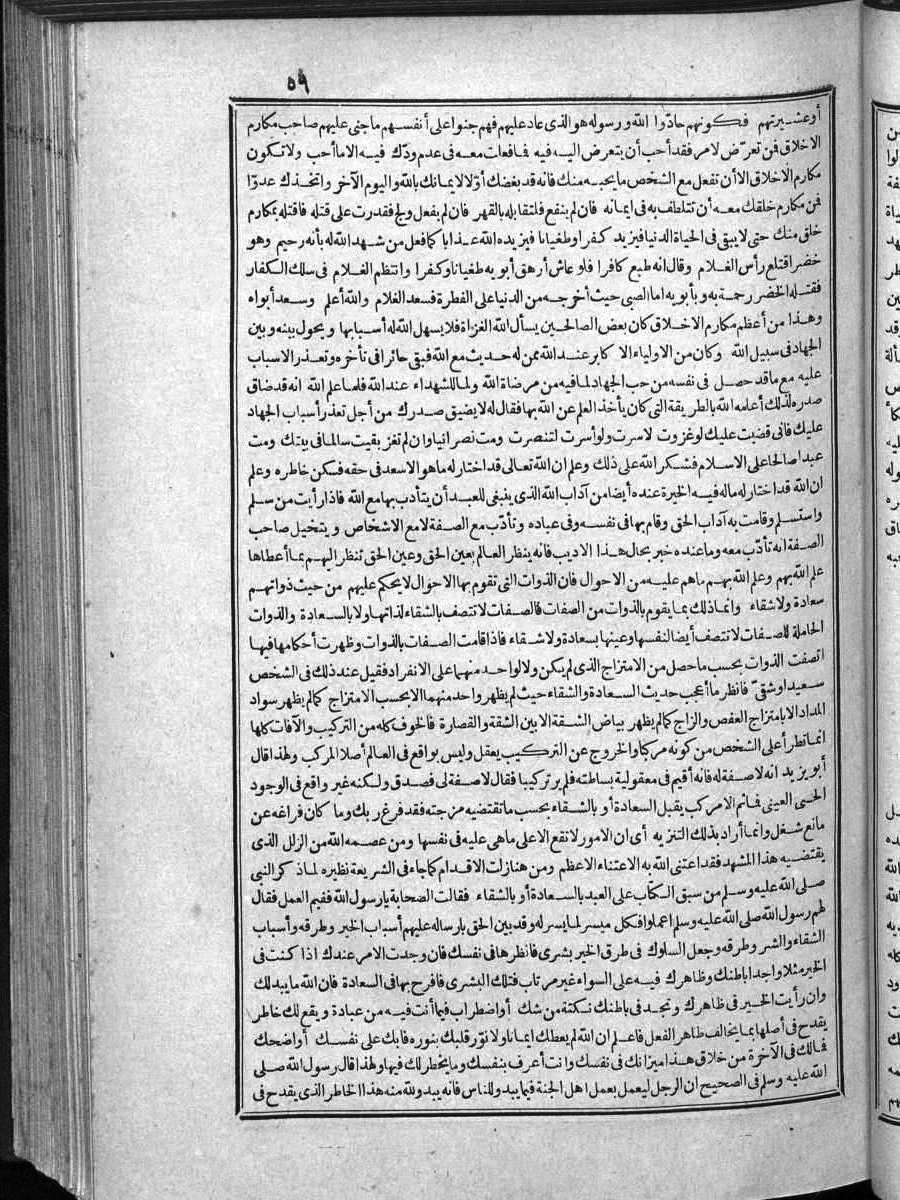 ٥٩
أوعشيرتهم فكونهم حادّوا الله ورسوله هو الذى عاد عليهم فهم جنوا على أنفسهم ما جنى عليهم صاحب مكارم
الاخلاق فن تعرّض لامر فقد أحب أن يتعرض اليه فيه فافعلت معه فى عدم ودّك فيه الا ما أحب ولا تكون
مكارم الاخلاق الا أن تفعل مع الشخص ما يحبه منك فانه قد بغضك أوّلا لايمانك بالله واليوم الآخر واتخذك عدوّا
فن مكارم خلقك معه أن تتلطف به فى ايمانه فان لم ينفع فلتقابله بالقهر فان لم يفعل ولج فقدرت على قتله فاقتله بمكارم
خلق منك حتى لا يبقى فى الحياة الدنيا فيزيد كفرا وطغيانا فيزيده الله عذابا كما فعل من شهد الله له بأنه رحيم وهو
خضر اقتلع رأس الغلام وقال انه طبع كافرا فلو عاش أرهق أبويه طغيانا وكفرا وانتظم الغلام فى سلك الكفار
فقتله الخضر رحمة به وبأبويه اما الصبى حيث أخرجه من الدنيا على الفطرة فسعد الغلام والله أعلم وسعد أبواه
وهذا من أعظم مكارم الاخلاق كان بعض الصالحين يسأل الله الغزاة فلا يسهل الله له أسبابها ويحول بينه وبين
الجهاد فى سبيل الله وكان من الاولياء الاكابر عند الله ممن له حديث مع الله فبقى حائرا فى تأخره وتعذر الاسباب
عليه مع ما قد حصل فى نفسه من حب الجهاد لما فيه من مرضاة الله ولما للشهداء عند الله فلما علم الله انه قد ضاق
صدره لذلك أعلمه الله بالطريقة التى كان يأخذ العلم عن الله بها فقال له لا يضيق صدرك من أجل تعذر أسباب الجهاد
عليك فانى قضيت عليك لو غزوت لاسرت ولو أسرت لتنصرت ومت نصرانيا وان لم تغز بقيت سالما فى بيتك ومت
عبدا صالحا على الاسلام فشكر الله على ذلك وعلم ان الله تعالى قد اختار له ما هو الاسعد فى حقه فسكن خاطره وعلم
ان الله قد اختار له ما له فيه الخيرة عنده أيضا من آداب الله الذى ينبغى للعبد أن يتأدب بها مع الله فاذا رأيت من سلم
واستسلم وقامت به آداب الحق وقام بها فى نفسه وفى عباده وتأدّب مع الصفة لا مع الاشخاص ويتخيل صاحب
الصفة انه تأدّب معه وما عنده خبر بحال هذا الاديب فانه ينظر العالم بعين الحق وعين الحق تنظر اليهم بما أعطاها
علم الله بهم وعلم الله بهم ما هم عليه من الاحوال فان الذوات التى تقوم بها الاحوال لا يحكم عليهم من حيث ذواتهم
سعادة ولا شقاء وانما ذلك بما يقوم بالذوات من الصفات فالصفات لا تتصف بالشقاء لذاتها ولا بالسعادة والذوات
الحاملة للصفات لا تتصف أيضا لنفسها وعينها بسعادة ولا شقاء فاذا قامت الصفات بالذوات وظهرت أحكامها فيها
اتصفت الذوات بحسب ما حصل من الامتزاج الذى لم يكن ولا لواحد منهما على الانفراد فقيل عند ذلك فى الشخص
سعيد او شقىّ فانظر ما أعجب حديث السعادة والشقاء حيث لم يظهر واحد منهما الا بحسب الامتزاج كما لم يظهر سواد
المداد الا بامتزاج العفص والزاج كما لم يظهر بياض الشقة الا بين الشقة والقصارة فالخوف كله من التركيب والآفات كلها
انما تطرأ على الشخص من كونه مركبا والخروج عن التركيب يعقل وليس بواقع فى العالم أصلا المركب ولهذا قال
أبو يزيد انه لا صفة له فانه أقيم فى معقولية بساطته فلم ير تركيبا فقال لا صفة لى فصدق ولكنه غير واقع فى الوجود
الحسى العينى فاثم الا مركب يقبل السعادة أو بالشقاء بحسب ما تقتضيه مزجته فقد فرغ ربك وما كان فراغه عن
مانع شغل وانما أراد بذلك التنزيه أى ان الامور لا تقع الا على ما هى عليه فى نفسها ومن عصمه الله من الزلل الذى
يقتضيه هذا المشهد فقد اعتنى الله به الاعتناء الاعظم ومن هنا زلت الاقدام كما جاء فى الشريعة نظيره لما ذكر النبى
صلى الله عليه وسلم من سبق الكتاب على العبد بالسعادة أو بالشقاء فقالت الصحابة يا رسول الله ففيم العمل فقال
لهم رسول الله صلى الله عليه وسلم اعملوا فكل ميسر لما يسر له وقد بين الحق بارساله عليهم أسباب الخير وطرقه وأسباب
الشقاء والشر وطرقه وجعل السلوك فى طرق الخير بشرى فانظرها فى نفسك فان وجدت الامر عندك اذا كنت فى
الخير مثلا واجدا باطنك وظاهرك فيه على السواء غير مرتاب فتلك البشرى فافرح بها فى السعادة فان الله ما يبدلك
وان رأيت الخير فى ظاهرك وتجد فى باطنك نكتة من شك أو اضطراب فيما أنت فيه من عبادة ويقع لك خاطر
يقدح فى أصلها بما يخالف ظاهر الفعل فاعلم ان الله لم يعطك ايمانا ولا نوّر قلبك بنوره فابك على نفسك أو اضحك
فالك فى الآخرة من خلاق هذا ميزانك فى نفسك وانت أعرف بنفسك وما يخطر لك فيها ولهذا قال رسول الله صلى
الله عليه وسلم فى الصحيح ان الرجل ليعمل بعمل اهل الجنة فيما يبدو للناس فانه يبدو لله منه هذا الخاطر الذى يقدح فى